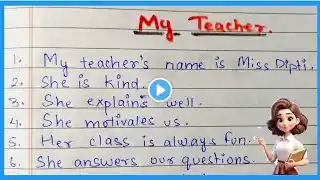 My Teacher.
1. My teacher's name is Miss Dipti.
2. She is kind.
3. She explains well.
4. She motivates us.
5. Her class is always fun.
6. She answers our questions.